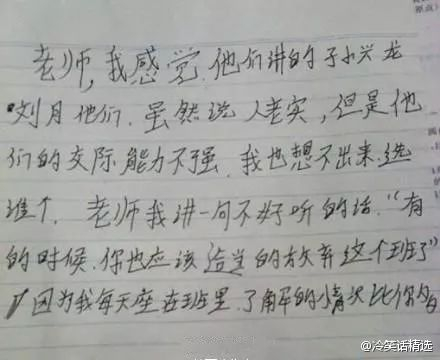 老师,我感觉.他们讲的于小兴龙
刘月他们.虽然说人老实,但是他
们的交际能力不强.我也想不出来选
谁个.老师我讲一句不好听的话."有
的时候.你也应该适当的放弃这个班了"
因为我每天座在班里.了解的情况比你
@冷笑话精选